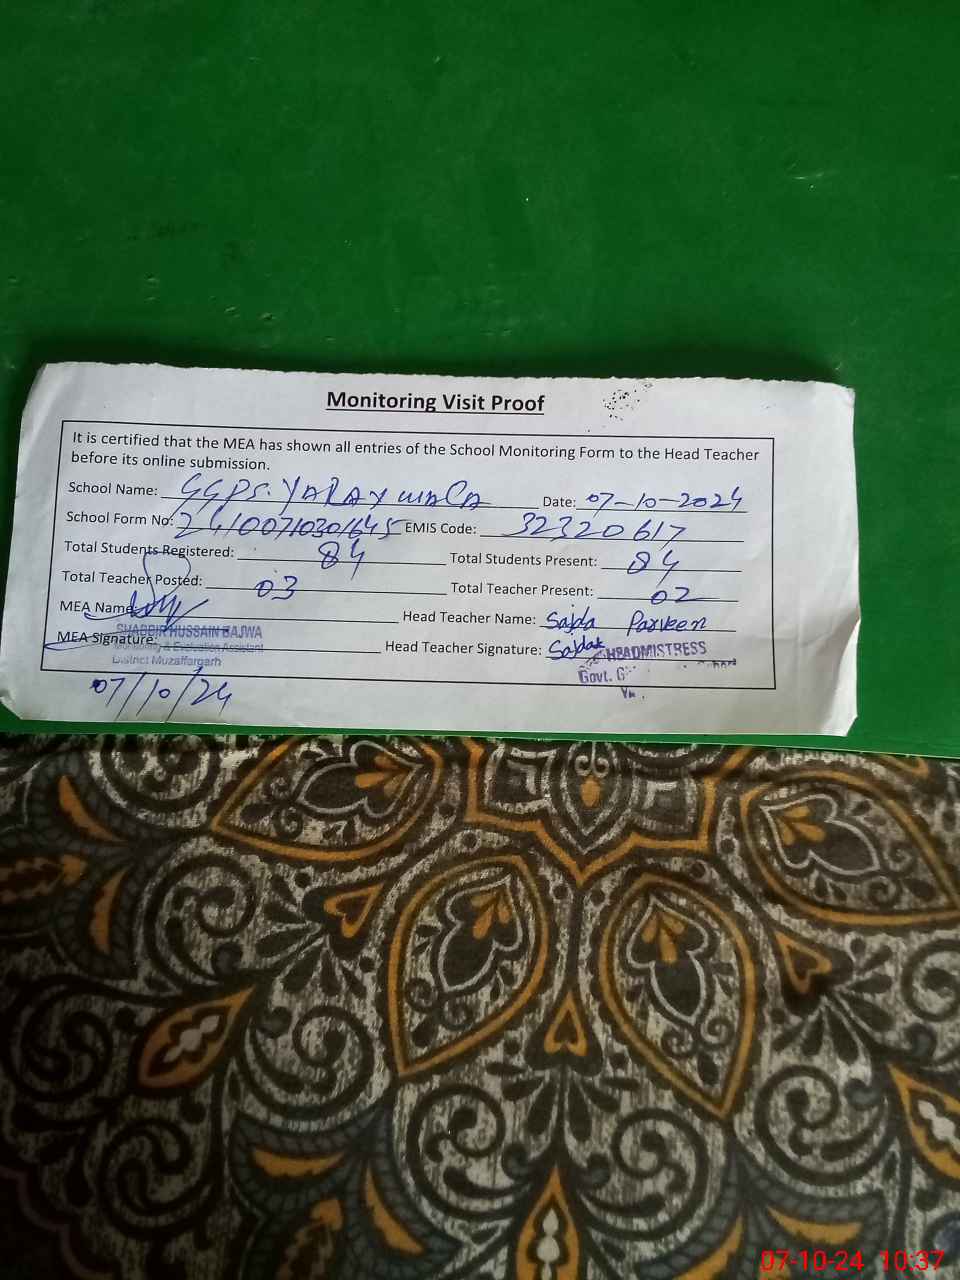 Monitoring Visit Proof
It is certified that the MEA has shown all entries of the School Monitoring Form to the Head Teacher
before its online submission.
School Name: GGPS. Date: 07-10-2024
School Form No: 24100710301645 EMIS Code: 32320617
Total Students Registered: 84 Total Students Present: 84
Total Teacher Posted: 03 Total Teacher Present: 02
MEA Name: Head Teacher Name: Sajda Parveen
SHABBIR HUSSAIN BAJWA
MEA Signature: Head Teacher Signature: Sajda HEADMISTRESS
Monitoring & Evaluation Assistant
District Muzaffargarh Govt.
07/10/24
07-10-24 10:37